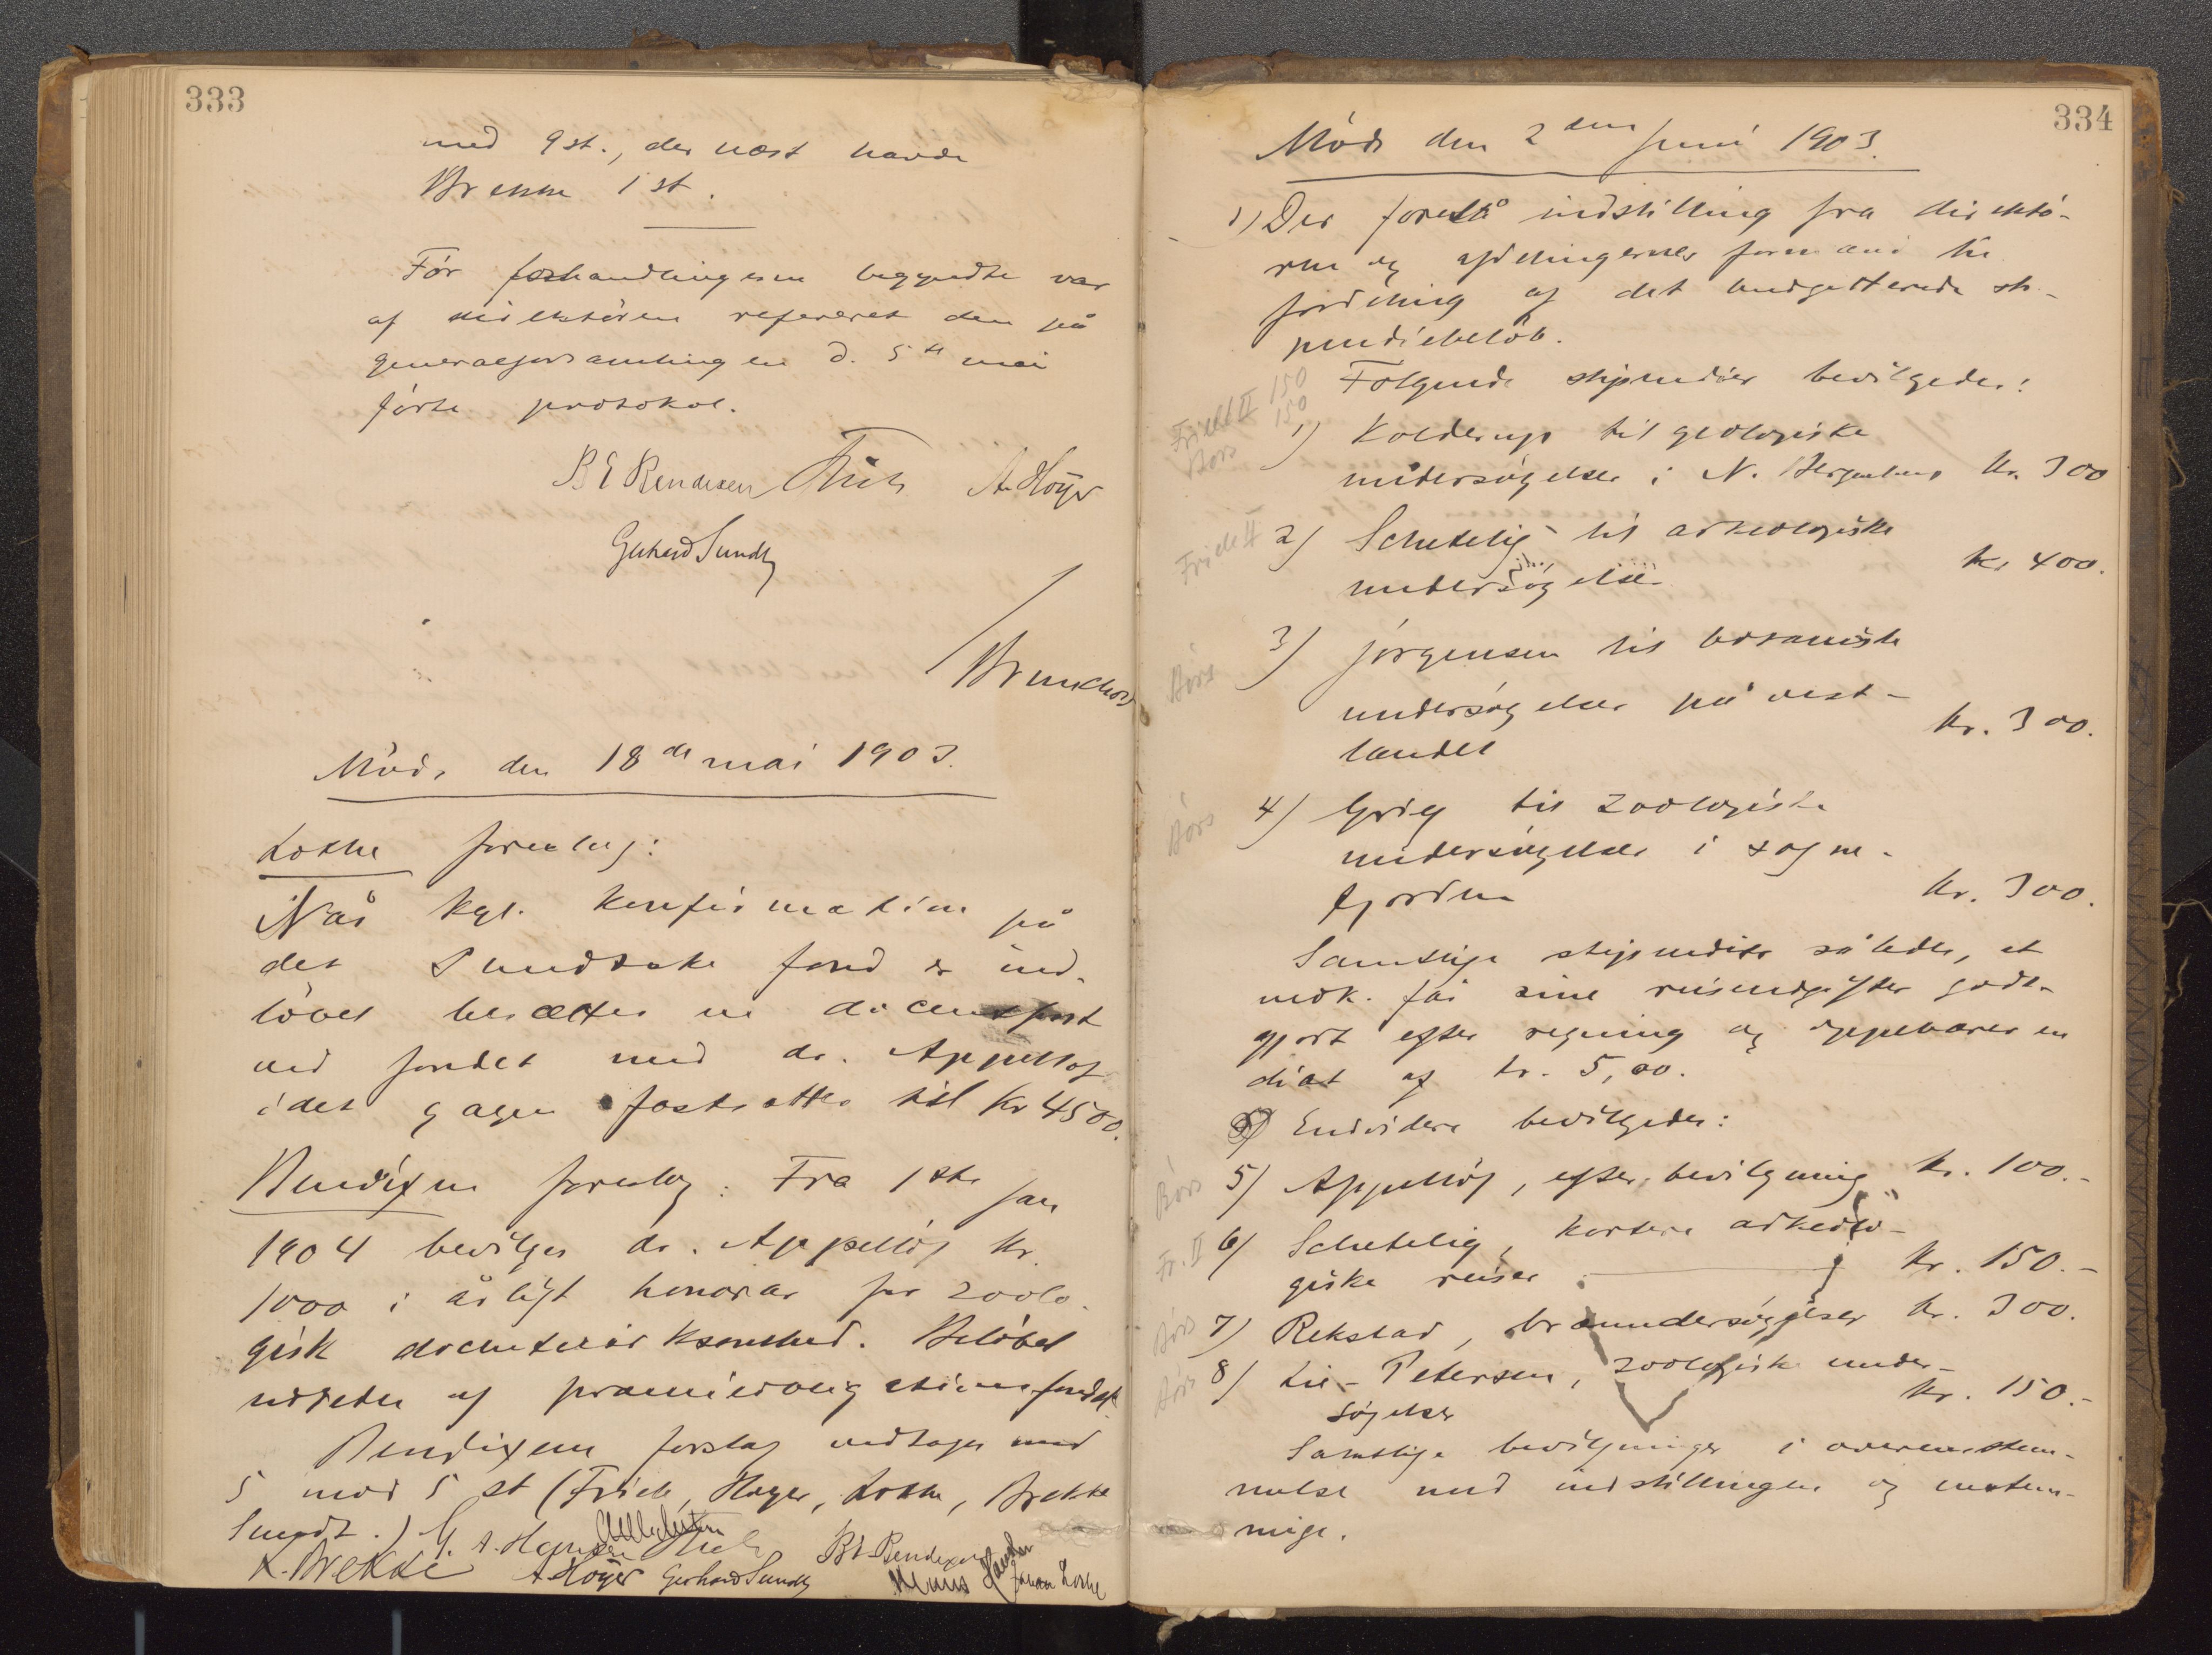 333
med 9 st., der næst havde
Brekke 1 st.
Før forhandlingerne begyndte var
af direktøren refereret den på
generalforsamlingen d. 5te mai
førte protokol.
B E Bendixen Frich A. Høyer
Gerhard Sundt
/Brunchorst
Møde den 18de mai 1903.
Lothe foreslog:
Når kgl. konfirmation på
det Sundtske fond er ind-
løbet besættes en docentpost
ved fondet med dr. Appelløf
idet gagen fastsættes til Kr 4500.
Bendixen foreslog: Fra 1ste jan
1904 bevilges dr. Appelløf kr.
1000 i årligt honorar for zoolo-
gisk docentvirksomhed. Beløbet
udredes af præmieobligationsfondet.
Bendixens forslag vedtages med
5 mod 5 st (Frich, Høyer, Lothe, Brekke
Sundt.)
K. Brekke A. Høyer Gerhard Sundt B E Bendixen Johan Lothe
334
Møde den 2den juni 1903.
1) Der forelå indstilling fra direktø-
ren og afdelingernes formænd til
fordeling af det budgetterede sti-
pendiebeløb.
Følgende stipendier bevilgedes:
Frielt II 150
Børs 150
1) Kolderup til geologiske
undersøgelser i N. Bergenhus kr. 300
Friele II
2) Schetelig til arkeologiske
undersøgelser kr 400.
Børs
3) Jørgensen til botaniske
undersøgelser på vest-
landet kr. 300.
Børs
4) Grieg til zoologiske
undersøgelser i Sogne-
fjorden kr. 300.
Samtlige stipendier således, at
vedk. får sine reiseudgifter godt-
gjort efter regning og oppebærer en
diæt af kr. 5,00.
Endvidere bevilgedes:
Børs 5) Appelløf, efter bevilgning kr. 100.-
Fr. II 6) Schetelig, kortere arkeolo-
giske reiser kr. 150.-
Børs 7) Rekstad, bræundersøgelser kr. 300.
Børs 8) Lie-Petersen, zoologiske under-
søgelser kr. 150.-
Samtlige bevilgninger i overensstem-
melse med indstillingen og enstem-
mige.